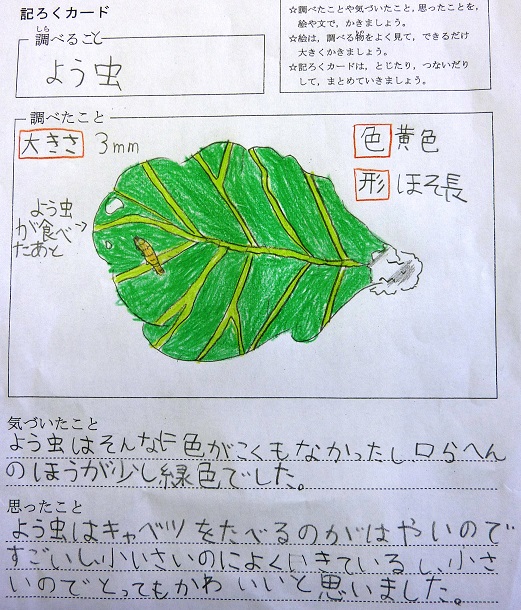 記ろくカード
☆調べたことや気づいたこと，思ったことを，
絵や文で，かきましょう。
☆絵は，調べる物をよく見て，できるだけ
大きくかきましょう。
☆記ろくカードは，とじたり，つないだり
して，まとめていきましょう。
調べること
よう虫
調べたこと
大きさ 3mm
色 黄色
形 ほそ長
よう虫
が食べ→
たあと
気づいたこと
よう虫はそんなに色がこくもなかったし、口らへん
のほうが少し緑色でした。
思ったこと
よう虫はキャベツをたべるのがはやいので
すごいし、小いさいのによくいきているし、小さ
いのでとってもかわいいと思いました。